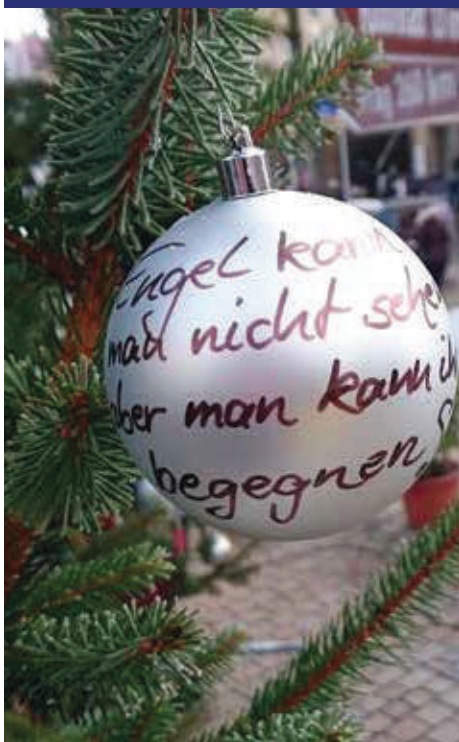 Engel kann
man nicht sehe
aber man kann ih
begegnen